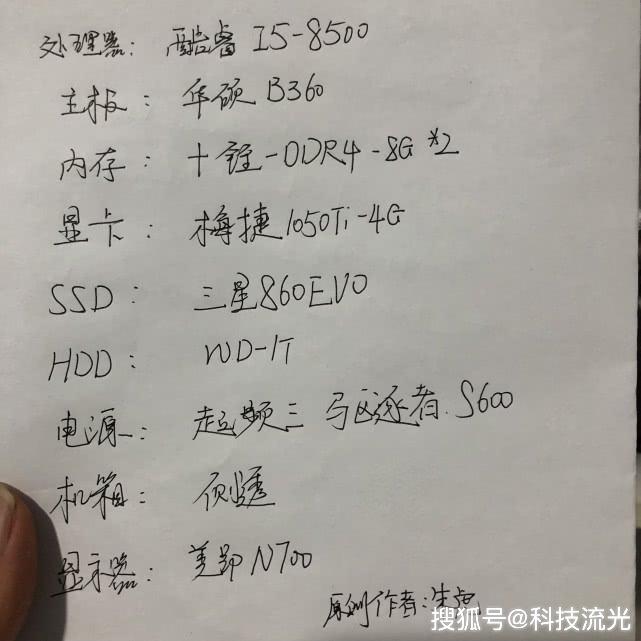 处理器：酷睿 I5-8500
主板：华硕 B360
内存：十铨-DDR4-8G*2
显卡：梅捷1050Ti-4G
SSD：三星860EVO
HDD：WD-1T
电源：超频三 驱逐者.S600
机箱：侧透
显示器：N700
原创作者：
搜狐号@科技流光